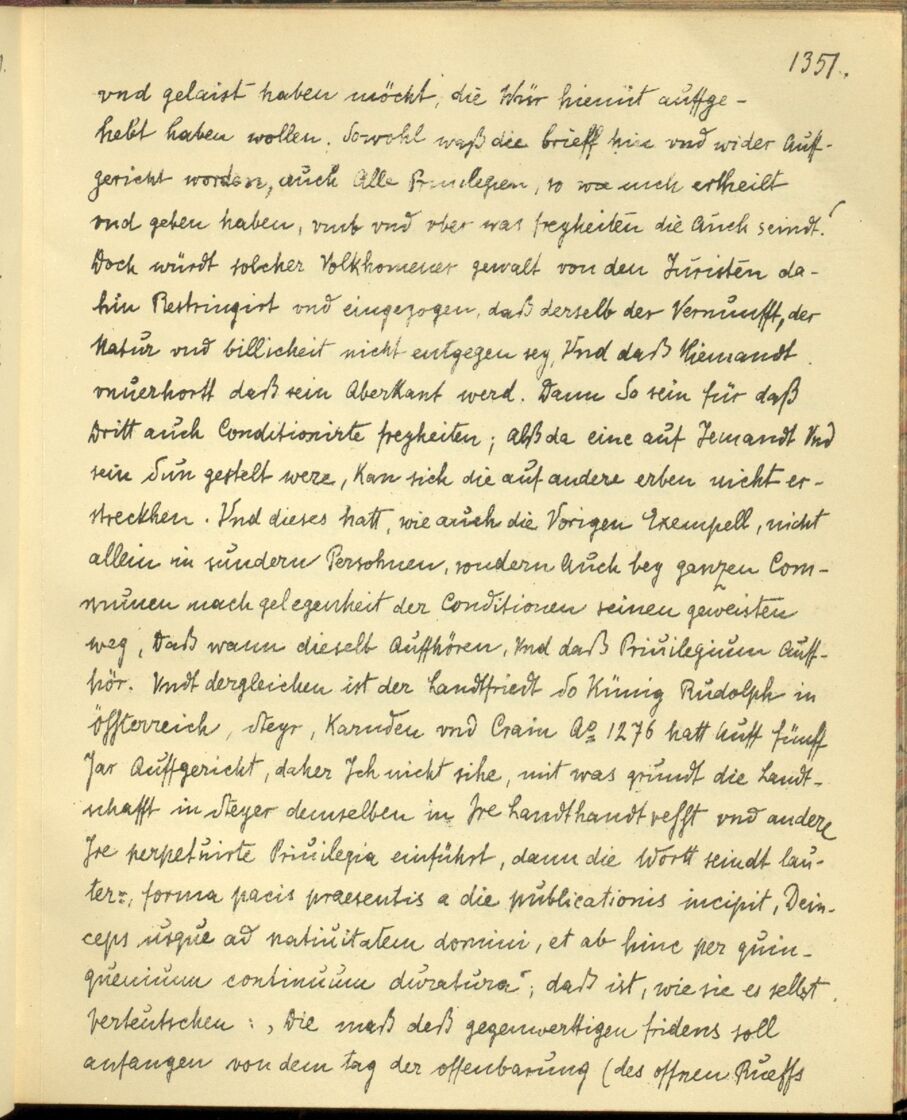 1351.
vnd gelaist haben möcht, die Wür hiemit auffge-
hebt haben wollen. Sowohl waß die brieff hin vnd wider Auff-
gericht worden, auch Alle Priuilegien, so wa euch ertheilt
vnd geben haben, vmb vnd vber was freyheiten die Auch seindt!
Doch würdt solcher Volkhomener gewalt von den Juristen da-
hin Restringirt vnd eingezogen, daß derselb der Vernunfft, der
Natur vnd billicheit nicht entgegen sey, Vnd daß Niemandt
vnuerhortt daß sein Aberkant werd. Dann So sein für daß
Dritt auch Conditionirte freyheiten; Alß da eine auf Jemandt Vnd
sein Sun gestelt were, kan sich die auf andere erben nicht er-
streckhen. Vnd dieses hatt, wie auch die Vorigen Exempell, nicht
allein in sundern Persohnen, sondern Auch bey ganzen Com-
munen nach gelegenheit der Conditionen seinen geweisten
weg, Daß wann dieselb Auffhören, Vnd daß Priuilegium Auff-
hör. Vndt dergleichen ist der Landtfriedt So Künig Rudolph in
Össterreich, Steyr, Karnden vnd Crain Ao 1276 hatt Auff fünff
Jar Auffgericht, daher Ich nicht sihe, mit was grundt die Landt-
schafft in Steyer demselben in Ire Landthandtvesst vnd andere
Ire perpetuirte Priuilegia einführt, dann die Wortt seindt lau-
ter:, forma pacis praesentis a die publicationis incipit, Dein-
ceps usque ad natiuitatem domini, et ab hinc per quin-
quenium continuum duratura"; daß ist, wie sie es selbst
Verteutschen: „Die maß deß gegenwerttigen fridens soll
anfangen von dem tag der offenbarung (des offnen Rueffs